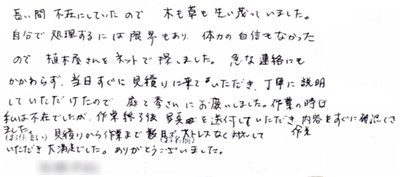 長い間不在にしていたので 木も草も生い茂っていました。
自分で処理するには限界もあり、体力の自信もなかった
ので 植木屋さんをネットで探しました。急な連絡にも
かかわらず、当日すぐに見積りに来ていただき、丁寧に説明
していただけたので 庭て秀さんにお願いしました。作業の時は
私は不在でしたが、作業終了後 写真を送付していただき、内容をすぐに確認でき
ました。 見積りから作業まで ストレスなく 作業
いただき 大満足でした。ありがとうございました。